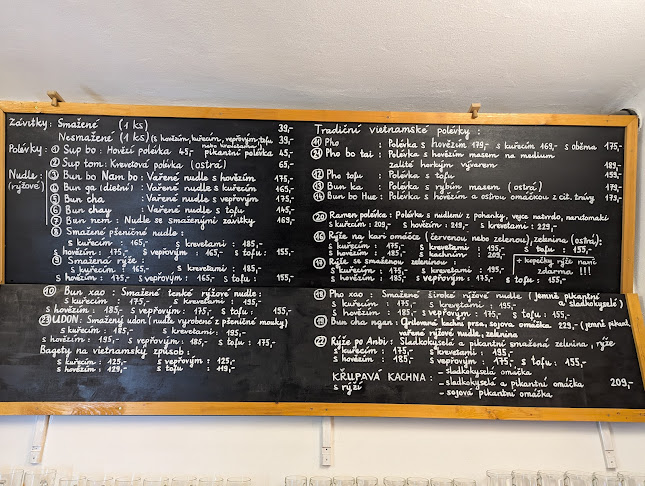 Závitky: Smažené (1 ks) 39,-
Nesmažené (1 ks) (s hovězím, kuřecím, vepřovým, tofu 39,-
nebo krevetami)
Polévky: ① Sup bo: Hovězí polévka 45,- pikantní polévka 45,-
② Sup tom: Krevetová polévka (ostrá)
Nudle: ③ Bun bo Nam bo: Vařené nudle s hovězím 175,-
(rýžové) ④ Bun ga (dietní): Vařené nudle s kuřecím 165,-
⑤ Bun cha : Vařené nudle s vepřovým 175,-
⑥ Bun chay : Vařené nudle s tofu 145,-
⑦ Bun nem: Nudle se smaženými závitky 169,-
⑧ Smažené pšeničné nudle:
s kuřecím: 165,- s krevetami: 185,-
s hovězím: 175,- s vepřovým: 165,- s tofu: 155,-
⑨ Smažená rýže:
s kuřecím: 165,- s krevetami: 185,-
s hovězím: 175,- s vepřovým: 165,- s tofu: 155,-
⑩ Bun xao: Smažené tenké rýžové nudle:
s kuřecím: 175,- s krevetami: 195,-
s hovězím: 185,- s vepřovým: 175,- s tofu: 155,-
㉓ UDON: Smažený udon (nudle vyrobené z pšeničné mouky)
s kuřecím: 185,- s krevetami: 195,-
s hovězím: 195,- s vepřovým: 185,- s tofu: 175,-
Bagety na vietnamský způsob:
s kuřecím: 125,- s vepřovým: 125,-
s hovězím: 129,- s tofu: 119,-
Tradiční vietnamské polévky:
⑪ Pho : Polévka s hovězím 179,- s kuřecím 169,- s oběma 175,-
㉔ Pho bo tai: Polévka s hovězím masem na medium
zalité horkým vývarem 189,-
⑫ Pho tofu : Polévka s tofu 159,-
⑬ Bun ka : Polévka s rybím masem (ostrá) 179,-
⑭ Bun bo Hue: Polévka s hovězím a ostrou omáčkou z cit. trávy 175,-
⑳ Ramen polévka: Polévka s nudlemi z pohanky, vejce natvrdo, naruto maki
s kuřecím: 209,- s hovězím: 219,- s krevetami: 229,-
⑯ Rýže na kari omáčce (červenou nebo zelenou), zelenina (ostrá):
s kuřecím: 175,- s krevetami: 195,- s tofu: 155,-
s hovězím: 185,- s kachním: 209,-
⑰ Rýže se smaženou zeleninou
s kuřecím: 175,- s krevetami: 195,-
s hovězím: 185,- s vepřovým: 175,- s tofu: 155,-
+ kopečky rýže není
zdarma !!!
⑱ Pho xao: Smažené široké rýžové nudle (jemně pikantní
a sladkokyselé)
s kuřecím: 175,- s krevetami: 195,-
s hovězím: 185,- s vepřovým: 175,- s tofu: 155,-
⑲ Bun cha ngan: Grilovaná kachní prsa, sojová omáčka 229,- (jemně pikant.
vařené rýžové nudle, zelenina
㉒ Rýže po Anbi: Sladkokyselá a pikantní smažená zelenina, rýže
s kuřecím: 175,- s krevetami: 195,-
s hovězím: 185,- s vepřovým: 175,- s tofu: 155,-
KŘUPAVÁ KACHNA: - sladkokyselá omáčka
s rýží - sladkokyselá a pikantní omáčka 209,-
- sojová pikantní omáčka